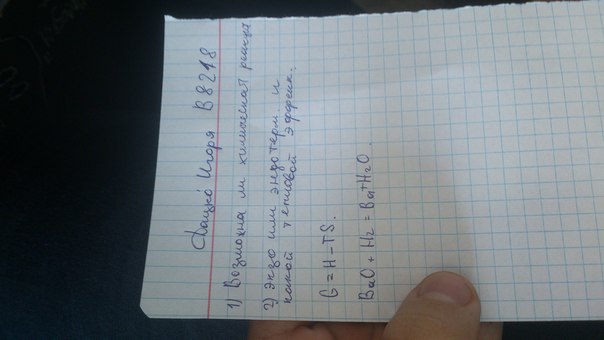 Дацко Игоря В8218
1) Возможна ли химическая реакция
2) Экзо или эндотерм. и
какой тепловой эффект.
G = H - TS.
BaO + H₂ = Ba + H₂O.